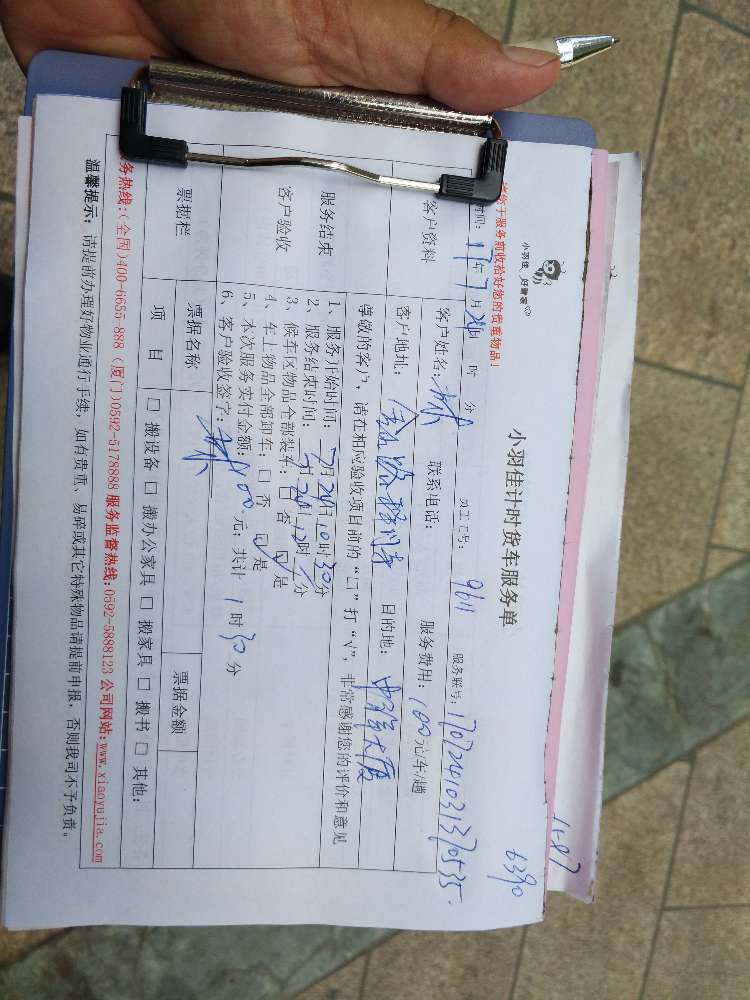 6390
11-87
小羽佳 好管家
小羽佳计时货车服务单
时间: 17年7月24日 时 分 员工工号: 9611 服务联号: 1707241031370535
将于服务前收拾好您的贵重物品!
客户资料 客户姓名: 林 联系电话: 服务费用: 100元/车/趟
客户地址: 目的地: 大厦
尊敬的客户, 请在相应验收项目前的“□”打“√”, 非常感谢您的评价和意见
服务结束
客户验收
1、服务开始时间: 7月24日10时30分
2、服务结束时间: 7月24日12时 分
3、候车区物品全部装车: □ 否 ☑ 是
4、车上物品全部卸车: □ 否 ☑ 是
5、本次服务实付金额: 100 元; 共计 1 时 30 分
6、客户验收签字: 林
票据栏 票据名称 票据金额
项 目 □ 搬设备 □ 搬办公家具 □ 搬家具 □ 搬书 □ 其他:
务热线:(全国)400-6655-888 (厦门)0592-5178888 服务监督热线:0592-5888123 公司网站:www.xiaoyujia.com
温馨提示: 请提前办理好物业通行手续, 如有贵重、易碎或其它特殊物品请提前申报, 否则我司不予负责。